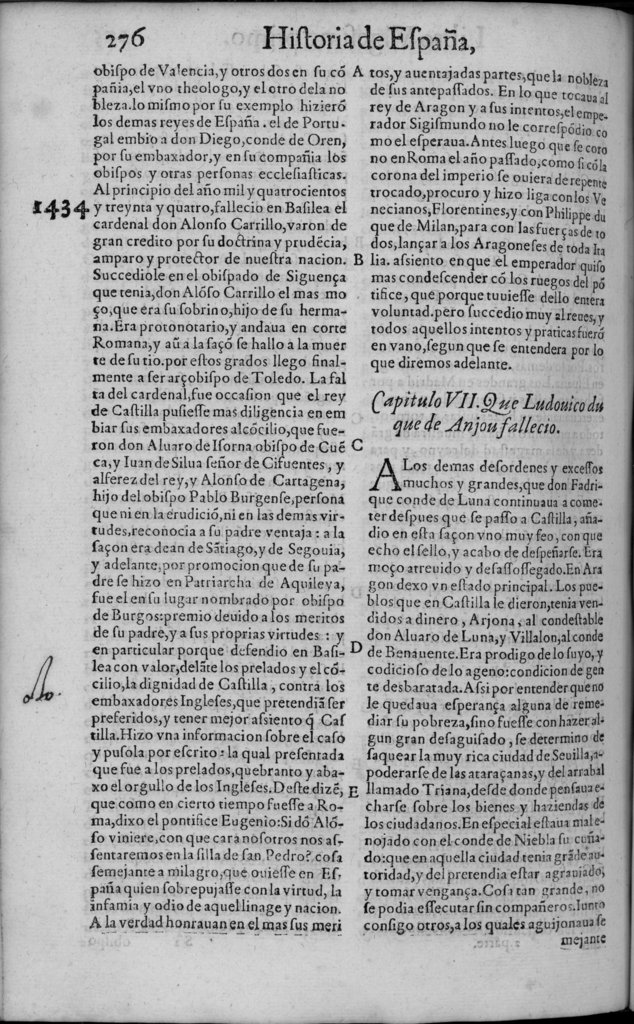 276
Historia de España,
obispo de Valencia, y otros dos en su cõ
pañia, el vno theologo, y el otro de la no
bleza. lo mismo por su exemplo hizierõ
los demas reyes de España. el de Portu-
gal embio a don Diego, conde de Oren,
por su embaxador, y en su compañia los
obispos y otras personas ecclesiasticas.
Al principio del año mil y quatrocientos
1434
y treynta y quatro, fallecio en Basilea el
cardenal don Alonso Carrillo, varon de
gran credito por su doctrina y prudẽcia,
amparo y protector de nuestra nacion.
Succediole en el obispado de Siguença
que tenia, don Alõso Carrillo el mas mo
ço, que era su sobrino, hijo de su herma-
na. Era protonotario, y andaua en corte
Romana, y aũ a la façõ se hallo a la muer
te de su tio. por estos grados llego final-
mente a ser arçobispo de Toledo. La fal
ta del cardenal, fue occasion que el rey
de Castilla pusiesse mas diligencia en em
biar sus embaxadores al cõcilio, que fue-
ron don Aluaro de Isorna obispo de Cuẽ
ca, y Iuan de Silua señor de Cifuentes, y
alferez del rey, y Alonso de Cartagena,
hijo del obispo Pablo Burgense, persona
que ni en la erudiciõ, ni en las demas vir-
tudes, reconocia a su padre ventaja: a la
façon era dean de Sãtiago, y de Segouia,
y adelante, por promocion que de su pa-
dre se hizo en Patriarcha de Aquileya,
fue el en su lugar nombrado por obispo
de Burgos: premio deuido a los meritos
de su padre, y a sus proprias virtudes: y
en particular porque defendio en Basi-
lea con valor, delãte los prelados y el cõ-
cilio, la dignidad de Castilla, contra los
embaxadores Ingleses, que pretendiã ser
preferidos, y tener mejor assiento q̃ Cas
tilla. Hizo vna informacion sobre el caso
y pusola por escrito: la qual presentada
que fue a los prelados, quebranto y aba-
xo el orgullo de los Ingleses. Deste dizẽ,
que como en cierto tiempo fuesse a Ro-
ma, dixo el pontifice Eugenio: Si dõ Alõ-
so viniere, con que cara nosotros nos as-
sentaremos en la silla de san Pedro? cosa
semejante a milagro, que ouiesse en Es-
paña quien sobrepujasse con la virtud, la
infamia y odio de aquel linage y nacion.
A la verdad honrauan en el mas sus meri
A
B
C
D
E
tos, y auentajadas partes, que la nobleza
de sus antepassados. En lo que tocaua al
rey de Aragon y a sus intentos, el empe-
rador Sigismundo no le correspõdio co
mo el esperaua. Antes luego que se coro
no en Roma el año passado, como si cõ la
corona del imperio se ouiera de repente
trocado, procuro y hizo liga con los Ve
necianos, Florentines, y con Philippe du
que de Milan, para con las fuerças de to
dos, lançar a los Aragoneses de toda Ita
lia. assiento en que el emperador quiso
mas condescender cõ los ruegos del põ
tifice, que porque tuuiesse dello entera
voluntad. pero succedio muy al reues, y
todos aquellos intentos y praticas fuerõ
en vano, segun que se entendera por lo
que diremos adelante.
Capitulo VII. Que Ludouico du
que de Anjou fallecio.
A Los demas desordenes y excessos
muchos y grandes, que don Fadri-
que conde de Luna continuaua a come-
ter despues que se passo a Castilla, aña-
dio en esta façon vno muy feo, con que
echo el sello, y acabo de despeñarse. Era
moço atreuido y desassossegado. En Ara
gon dexo vn estado principal. Los pue-
blos que en Castilla le dieron, tenia ven-
didos a dinero, Arjona, al condestable
don Aluaro de Luna, y Villalon, al conde
de Benauente. Era prodigo de lo suyo, y
codicioso de lo ageno: condicion de gen
te desbaratada. Assi por entender que no
le quedaua esperança alguna de reme-
diar su pobreza, sino fuesse con hazer al-
gun gran desaguisado, se determino de
saquear la muy rica ciudad de Seuilla, a-
poderarse de las ataraçanas, y del arrabal
llamado Triana, desde donde pensaua e-
charse sobre los bienes y haziendas de
los ciudadanos. En especial estaua mal e-
nojado con el conde de Niebla su cuña-
do: que en aquella ciudad tenia grãde au-
toridad, y del pretendia estar agrauiado,
y tomar vengança. Cosa tan grande, no
se podia essecutar sin compañeros. Iunto
consigo otros, a los quales aguijonaua se
mejante